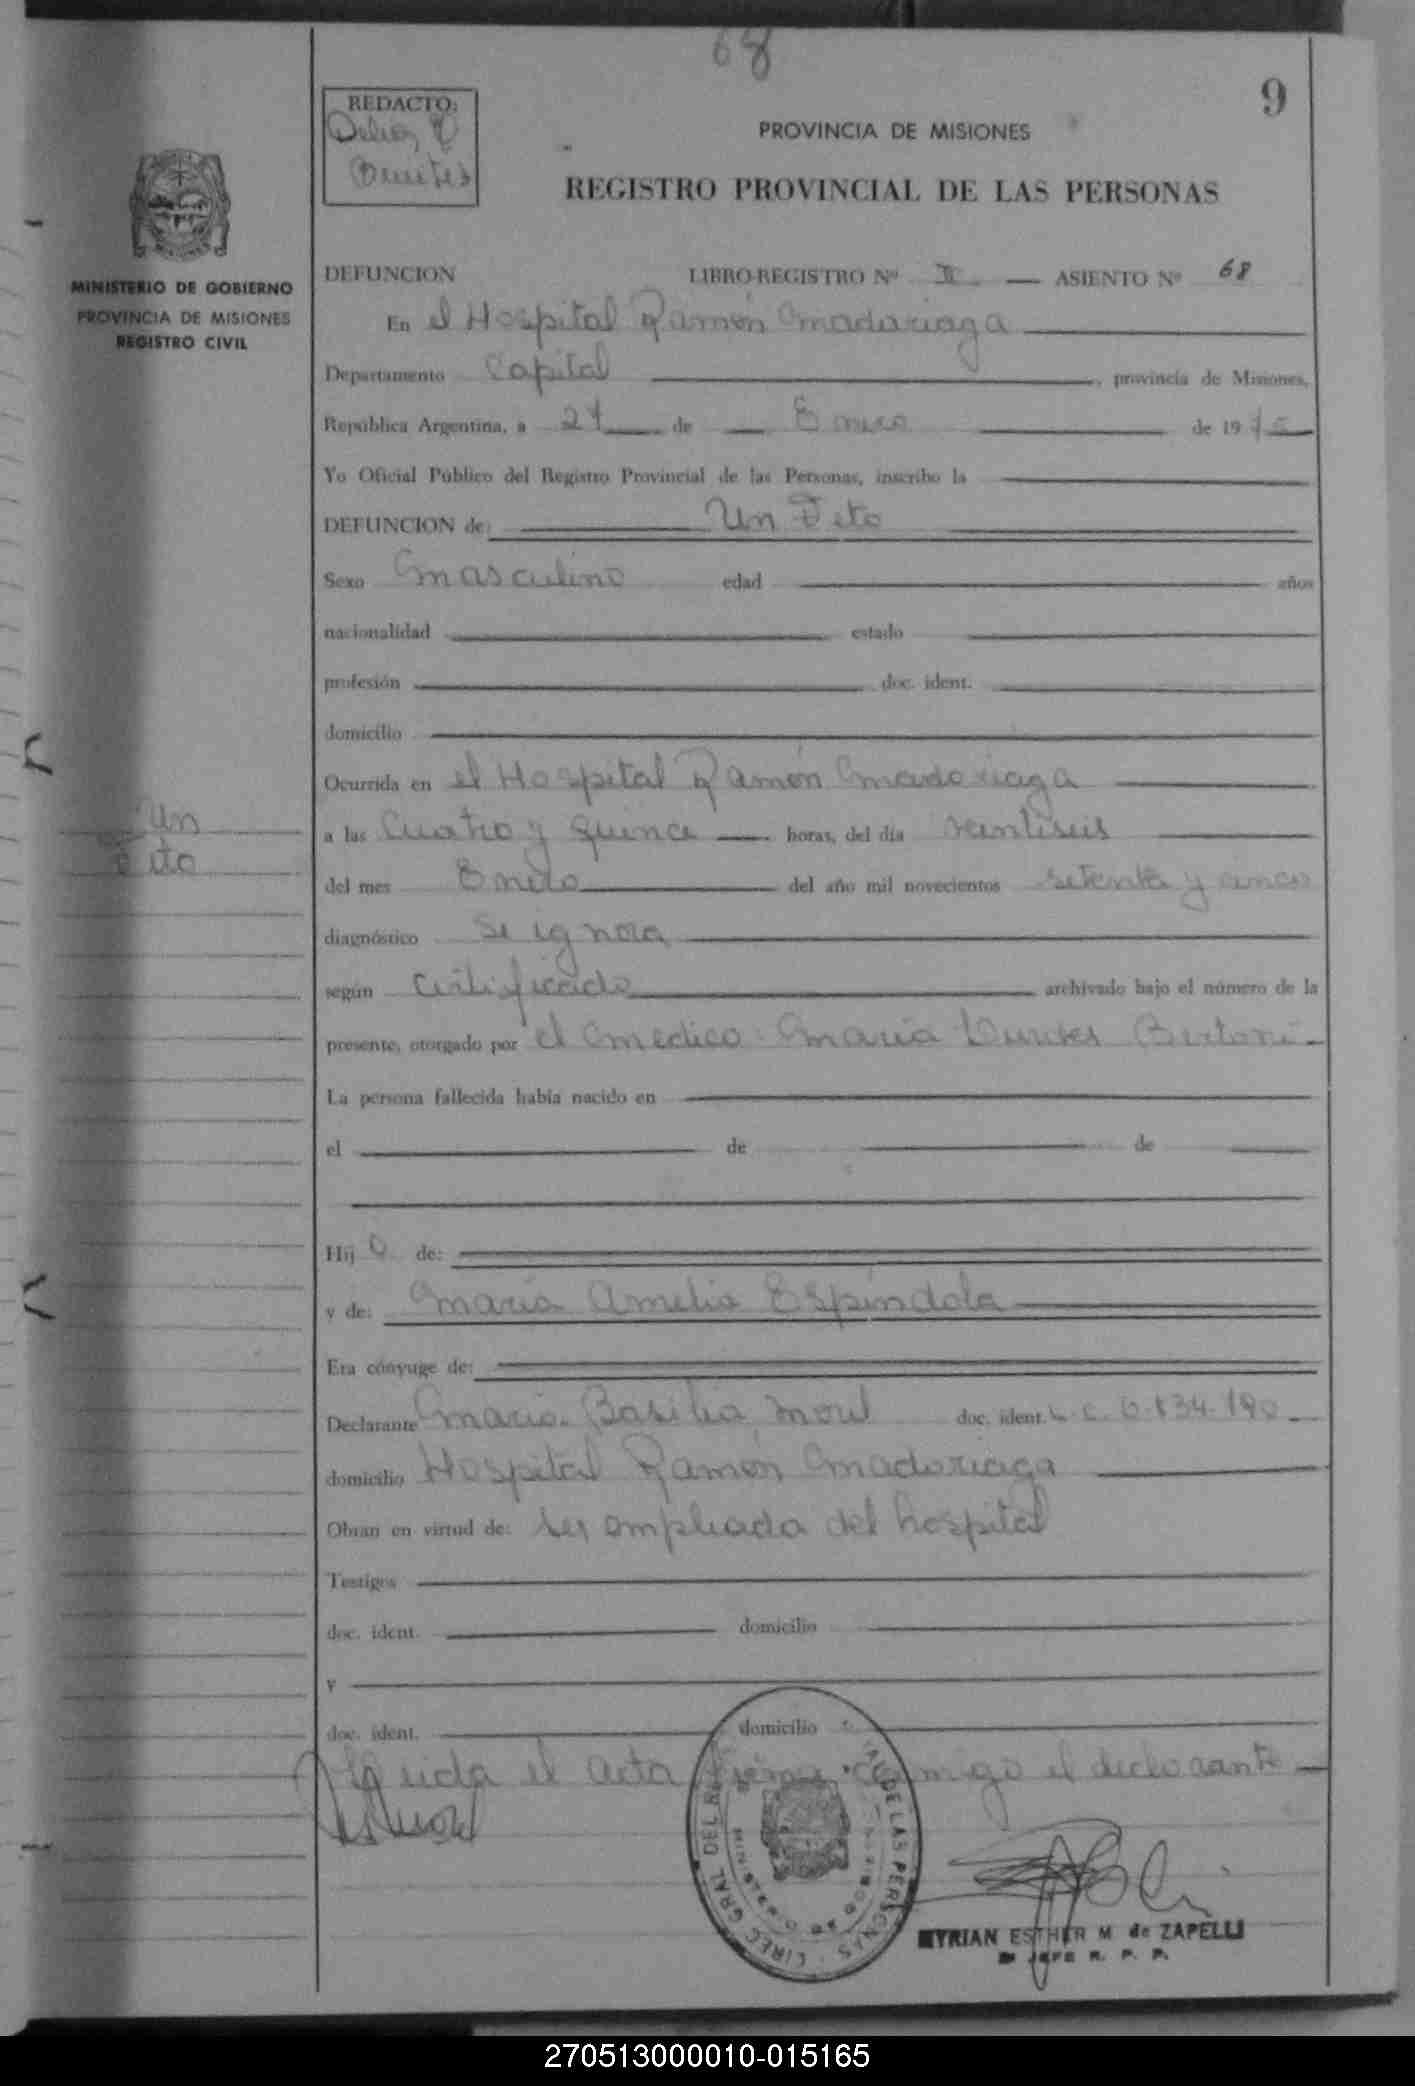 68
9
REDACTO:
Benites
PROVINCIA DE MISIONES
REGISTRO PROVINCIAL DE LAS PERSONAS
MINISTERIO DE GOBIERNO
PROVINCIA DE MISIONES
REGISTRO CIVIL
DEFUNCION LIBRO-REGISTRO Nº II — ASIENTO Nº 68
En el Hospital Ramón Madariaga
Departamento Capital, provincia de Misiones,
República Argentina, a 27 de Enero de 1975
Yo Oficial Público del Registro Provincial de las Personas, inscribo la
DEFUNCION de: Un Feto
Sexo Masculino edad años
nacionalidad estado
profesión doc. ident.
domicilio
Ocurrida en el Hospital Ramón Madariaga
Un
Feto
a las Cuatro y quince horas, del día veintiseis
del mes Enero del año mil novecientos setenta y cinco
diagnóstico Se ignora
según Certificado archivado bajo el número de la
presente, otorgado por el Medico: Maria Lourdes Bertoni
La persona fallecida había nacido en
el de de
Hijo de:
y de: Maria Amelia Espindola
Era cónyuge de:
Declarante Maria Basilia Morel doc. ident. L.C.
domicilio Hospital Ramón Madariaga
Obran en virtud de: ser empleada del hospital
Testigos
doc. ident. domicilio
y
doc. ident. domicilio
Leida el acta firma conmigo el declarante
DE LAS PERSONAS
MINISTERIO DE GOBIERNO
MYRIAN ESTHER M de ZAPELLI
JEFE R. P. P.
270513000010-015165